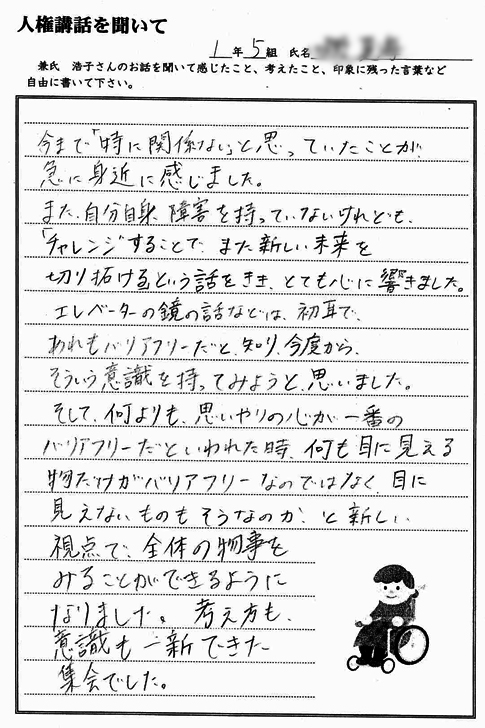 人権講話を聞いて
1年 5組 氏名
兼氏 浩子さんのお話を聞いて感じたこと、考えたこと、印象に残った言葉など
自由に書いて下さい。
今まで「特に関係ない」と思っていたことが
急に身近に感じました。
また、自分自身、障害を持っていないけれども、
「チャレンジ」することで、また新しい未来を
切り拓けるという話をきき、とても心に響きました。
エレベーターの鏡の話などは、初耳で、
あれもバリアフリーだと知り、今度から、
そういう意識を持ってみようと思いました。
そして、何よりも、思いやりの心が一番の
バリアフリーだといわれた時、何も目に見える
物だけがバリアフリーなのではなく、目に
見えないものもそうなのか、と新しい
視点で、全体の物事を
みることができるように
なりました。 考え方も、
意識も一新できた
集会でした。